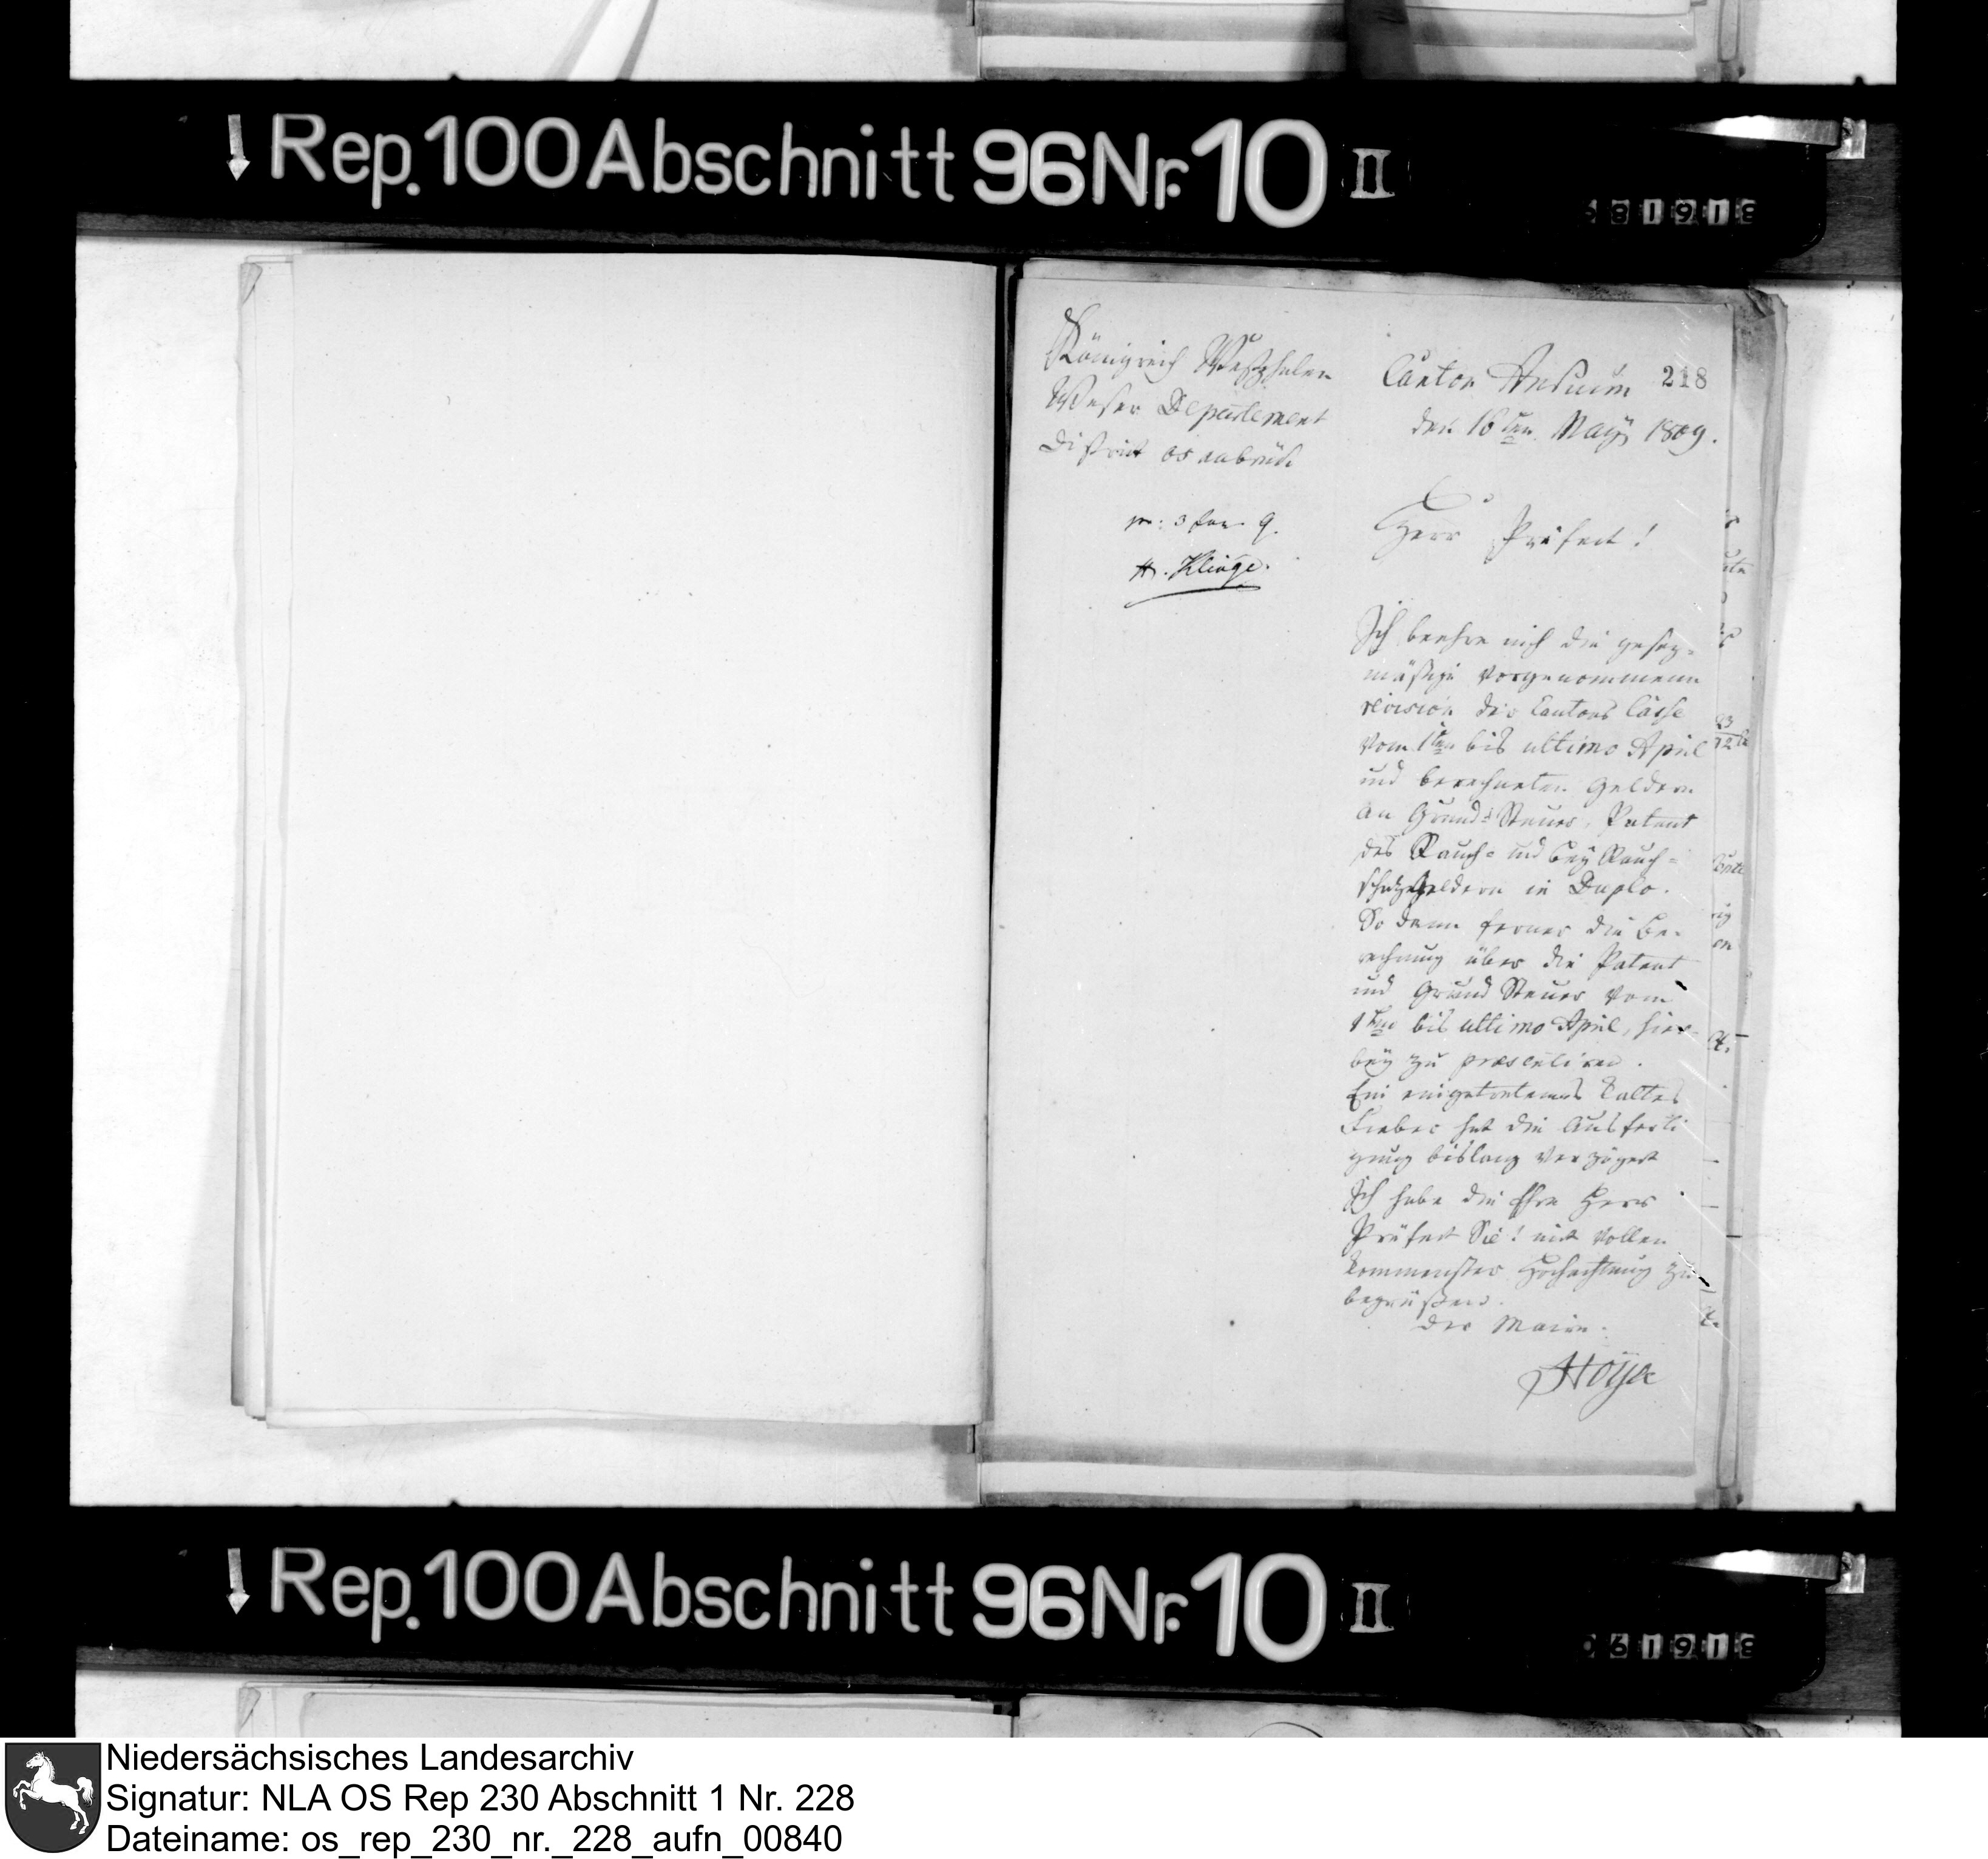 ↓ Rep. 100 Abschnitt 96 Nr. 10 II
Königreich Westphalen
Weser Departement
District Osnabrück
Canton Ankum 218
den 16ten May 1809.
H. Klinge.
Herr Präfect!
Ich beehre mich die gesez-
mäßige vorgenommene
revision der Cantons Casse
vom 1ten bis ultimo April
und berechneten Geldern
an Grund-Steuer, Patent
des Rauch- und bey Rauch-
schatzgeldern in Duplo.
So dann ferner die Be-
rechnung über die Patent
und Grund Steuer vom
1ten bis ultimo April, hier-
bey zu praesentiren.
Ein eingetretenes kaltes
Fieber hat die Ausferti
gung bislang verzögert
Ich habe die Ehre Herr
Präfect Sie! mit vollen
kommenster Hochachtung zu
begrüßen.
Der Maire.
Hoya
↓ Rep. 100 Abschnitt 96 Nr. 10 II
Niedersächsisches Landesarchiv
Signatur: NLA OS Rep 230 Abschnitt 1 Nr. 228
Dateiname: os_rep_230_nr._228_aufn_00840